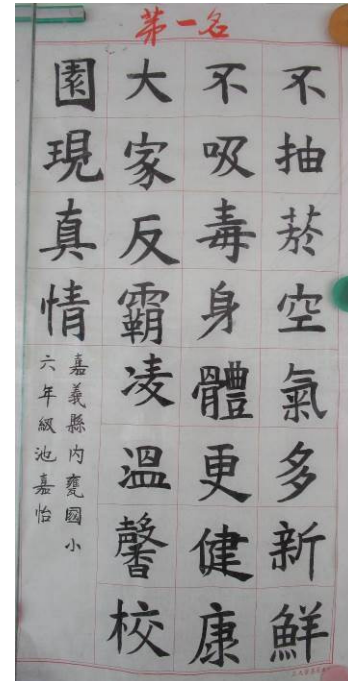 第一名
不抽菸空氣多新鮮
不吸毒身體更健康
大家反霸凌溫馨校
園現真情
嘉義縣內甕國小
六年級池嘉怡